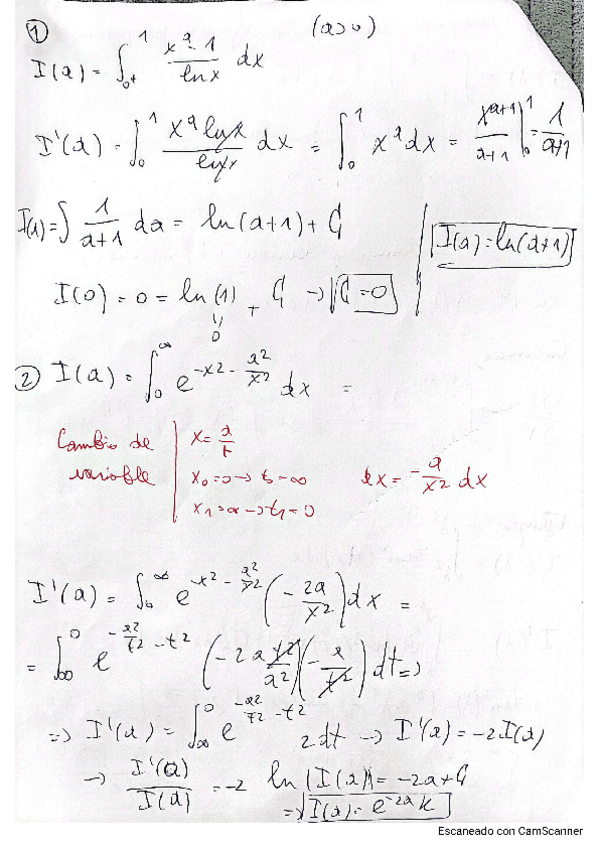 ① (a>0)
I(a) = ∫₀⁺¹ (xᵃ - 1)/(ln x) dx
I'(a) = ∫₀¹ (xᵃ log x)/(log x) dx = ∫₀¹ xᵃ dx = x^(a+1)/(a+1) |₀¹ = 1/(a+1)
I(a) = ∫ 1/(a+1) da = ln(a+1) + C₁ | I(a) = ln(a+1)
I(0) = 0 = ln(1) + C₁ → C₁ = 0
0
② I(a) = ∫₀^∞ e^(-x² - a²/x²) dx =
Cambio de | x = a/t
variable | x₀ = 0 → t₀ = ∞ dx = -a/x² dx
x₁ = ∞ → t₁ = 0
I'(a) = ∫₀^∞ e^(-x² - a²/x²) (-2a/x²) dx =
= ∫_∞⁰ e^(-a²/t² - t²) (-2a t²/a²)(-a/t²) dt ⇒
⇒ I'(a) = ∫_∞⁰ e^(-a²/t² - t²) 2 dt → I'(a) = -2I(a)
→ I'(a)/I(a) = -2 ln|I(a)| = -2a + C₁
⇒ I(a) = e^(-2a) K
Escaneado con CamScanner